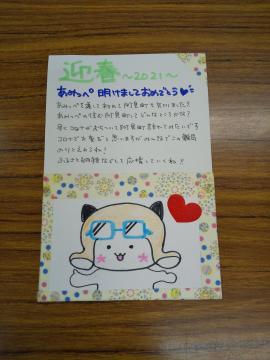 迎春～2021～
あみっぺ 明けましておめでとう
あみっぺを通して初めて阿見町を知りました！
あみっぺの住む阿見町ってどんなところかな？
早くコロナがおちついて阿見町を訪れてみたいです
コロナで大変だと思いますがみんなでこの難局
のりこえようね！
ふるさと納税などして応援していくね！